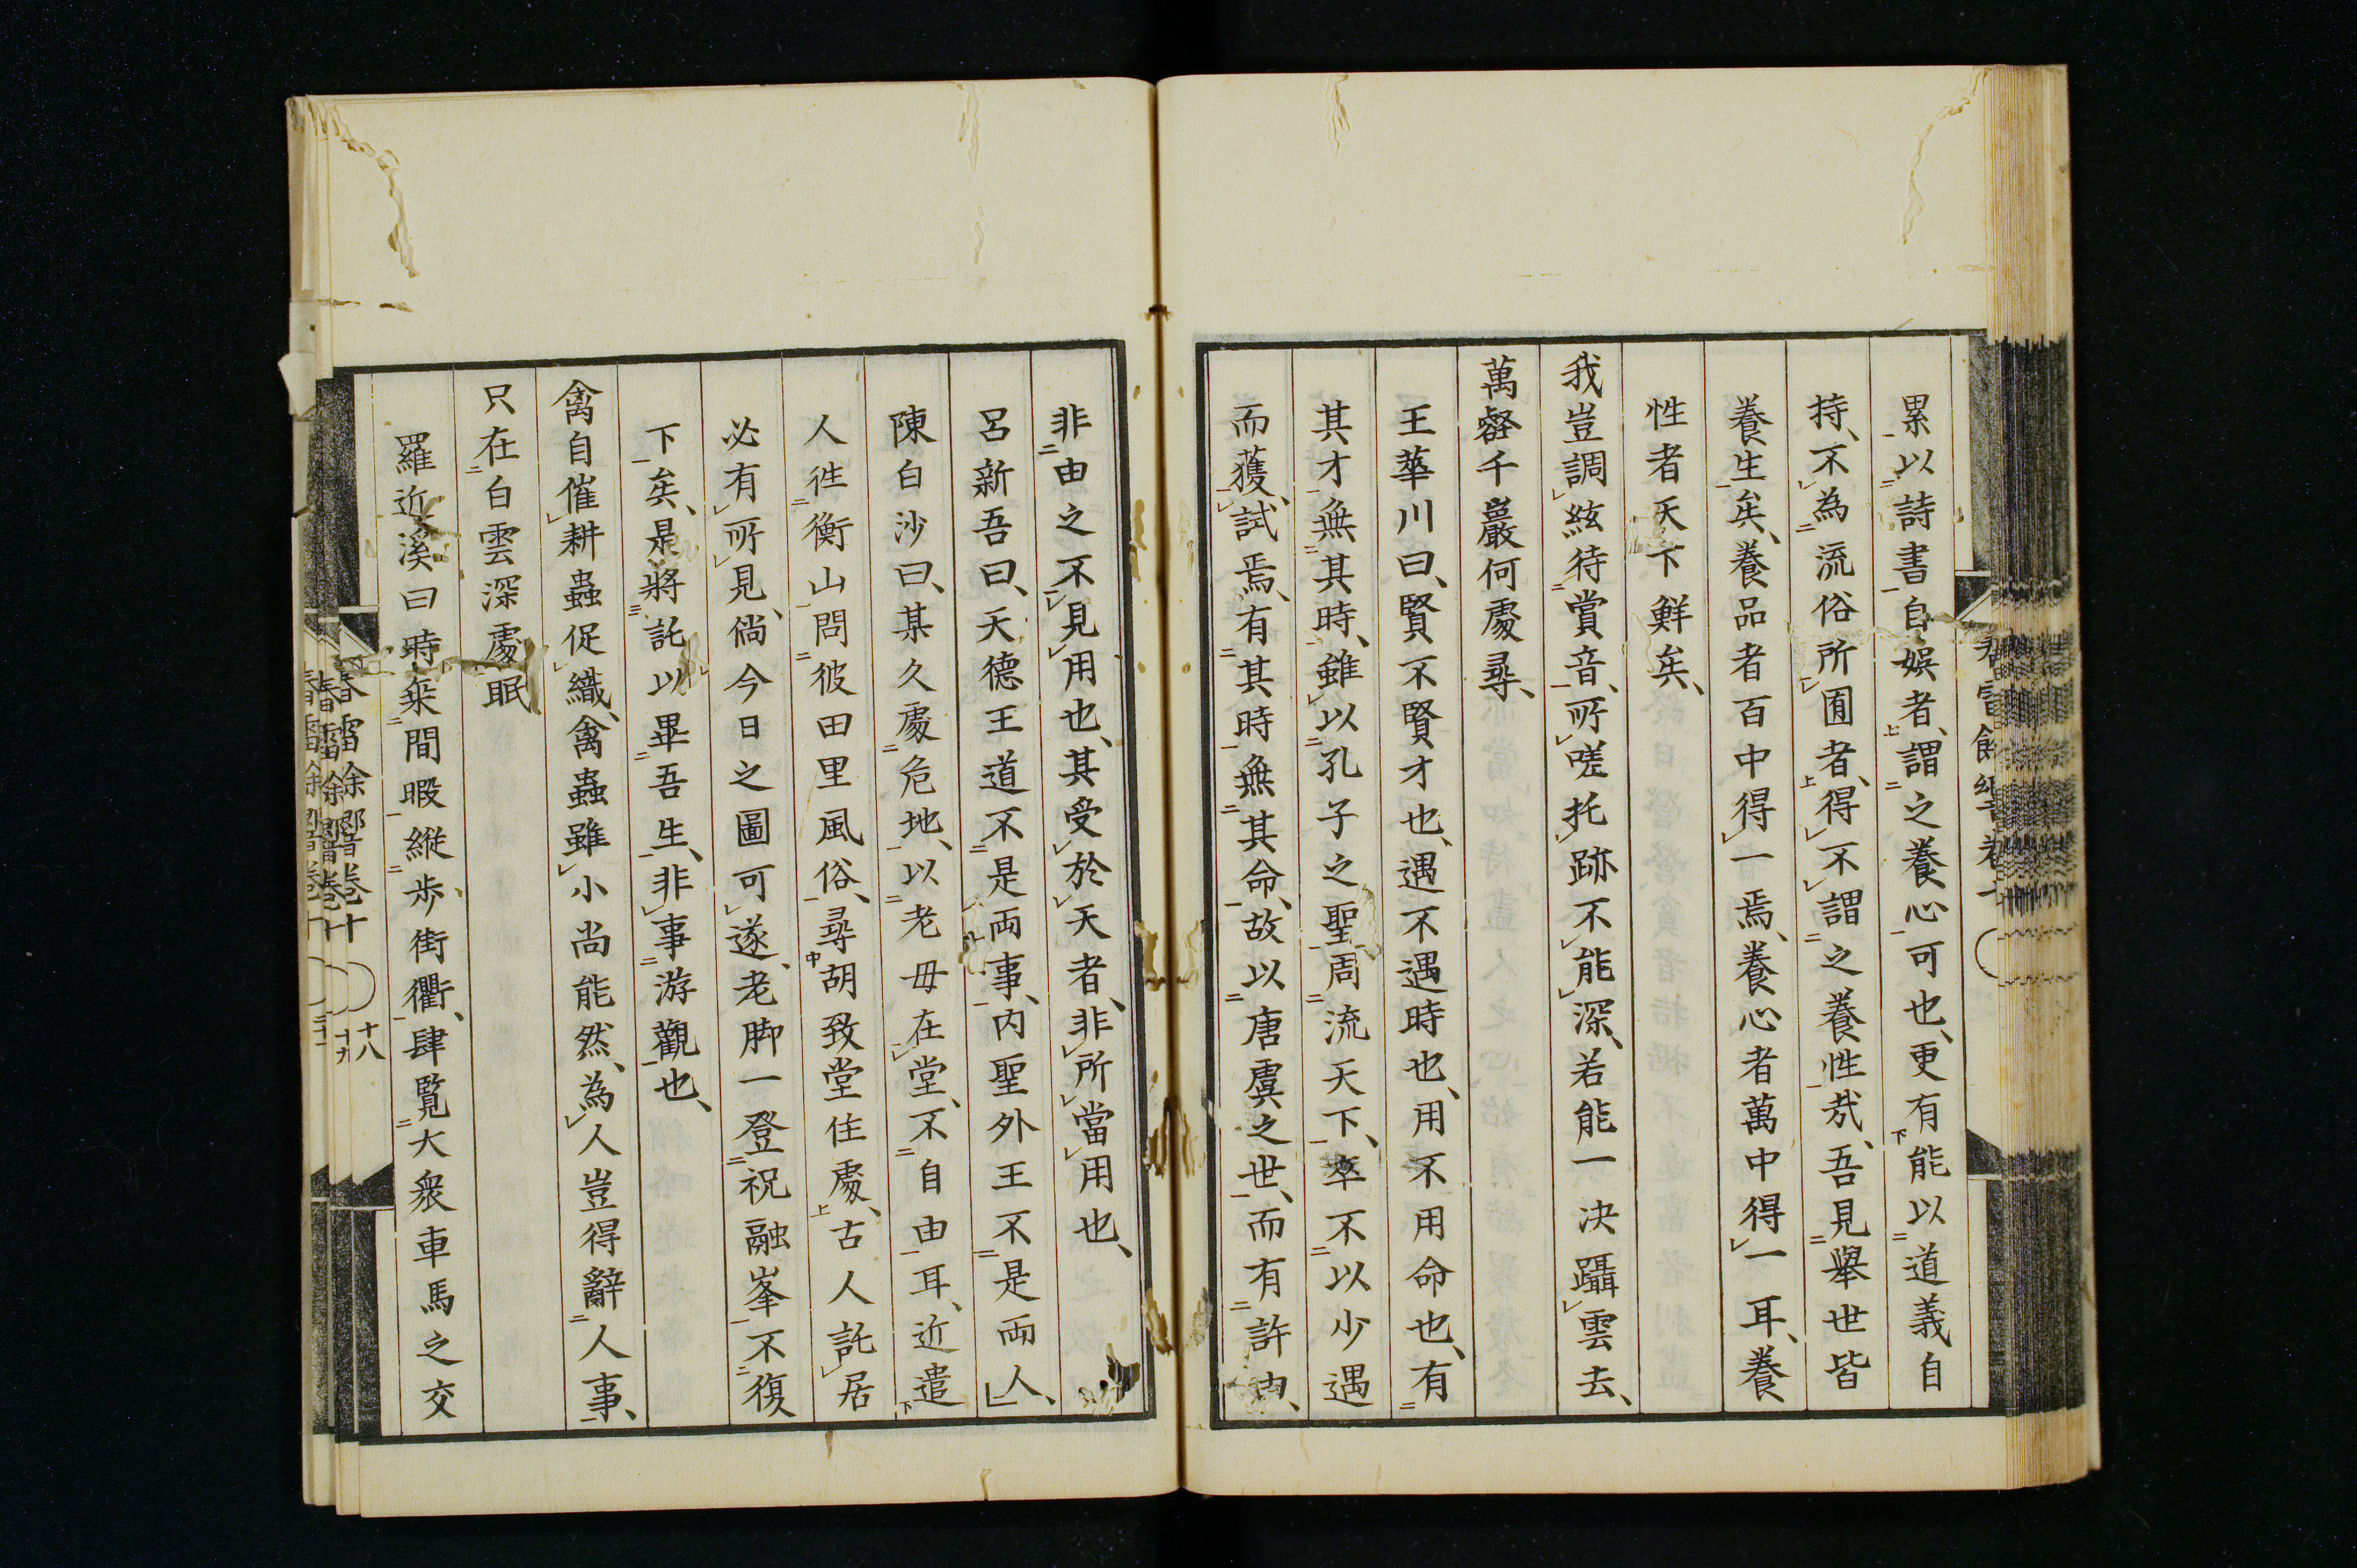 累以詩書自娯者、謂之養心可也、更有能以道義自
持、不為流俗所囿者、得不謂之養性哉、吾見舉世皆
養生矣、養品者百中得一焉、養心者萬中得一耳、養
性者天下鮮矣、
我豈調絃待賞音、所嗟托跡不能深、若能一决躡雲去、
萬壑千巖何處尋、
王華川曰、賢不賢才也、遇不遇時也、用不用命也、有
其才無其時、雖以孔子之聖、周流天下、率不以少遇
而獲試焉、有其時無其命、故以唐虞之世、而有許由、
非由之不見用也、其受於天者、非所當用也、
呂新吾曰、天德王道不是両事、内聖外王不是両人、
陳白沙曰、某久處危地、以老母在堂、不自由耳、近遣
人徃衡山問彼田里風俗、尋胡致堂住處、古人託居
必有所見、倘今日之圖可遂、老脚一登祝融峯、不復
下矣、是將託以畢吾生、非事游觀也、
禽自催耕蟲促織、禽蟲雖小尚能然、為人豈得辭人事、
只在白雲深處眠
羅近溪曰時乗間暇縦歩街衢、肆覧大衆車馬之交
春雷餘響巻十
十八
春雷餘響巻十
十九
春雷餘響巻十